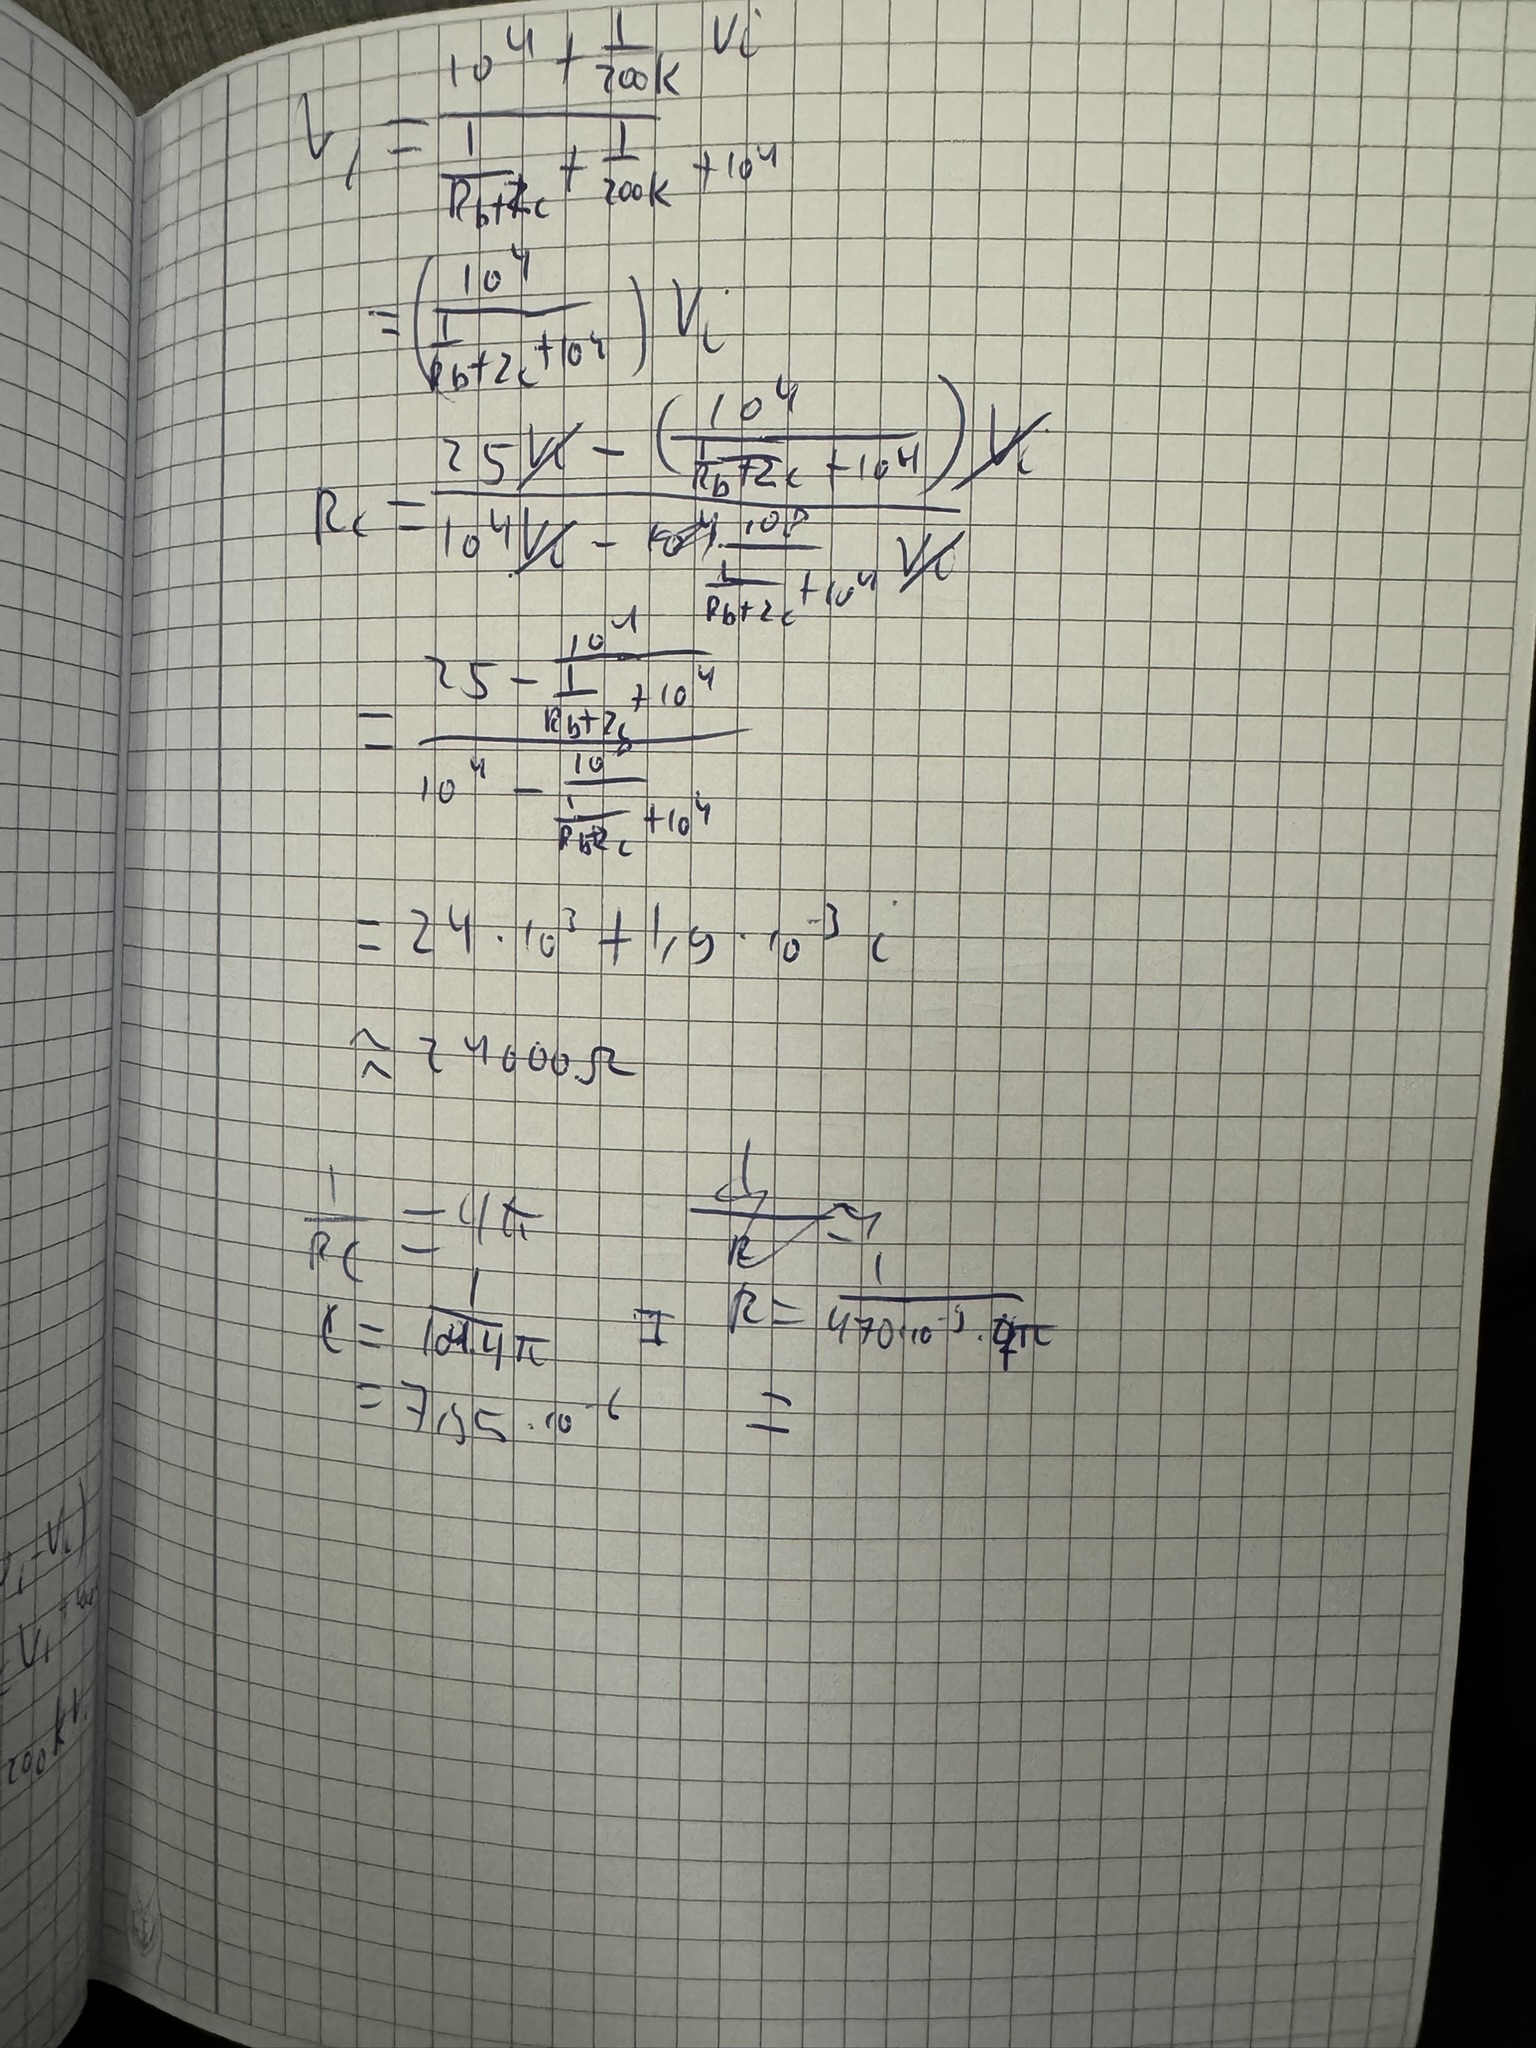 V₁ = (10⁴ + 1/200k Vi) / (1/(Rb+Zc) + 1/200k + 10⁴)
= (10⁴ / (1/(Rb+Zc) + 10⁴)) Vi
Rc = (25Vi - (10⁴ / (1/(Rb+Zc) + 10⁴)) Vi) / (10⁴Vi - 10⁸ / (1/(Rb+Zc) + 10⁴) Vi)
= (25 - 10⁴ / (1/(Rb+Zc) + 10⁴)) / (10⁴ - 10⁸ / (1/(Rb+Zc) + 10⁴))
= 24 · 10³ + 1,9 · 10⁻³ i
≈ 24000Ω
1/RC = 4π
C = 1/(10⁴·4π)
R = 1/(470·10⁻⁹·4π)
= 7,95 · 10⁻⁶ =
-Vi)
V₁
200k